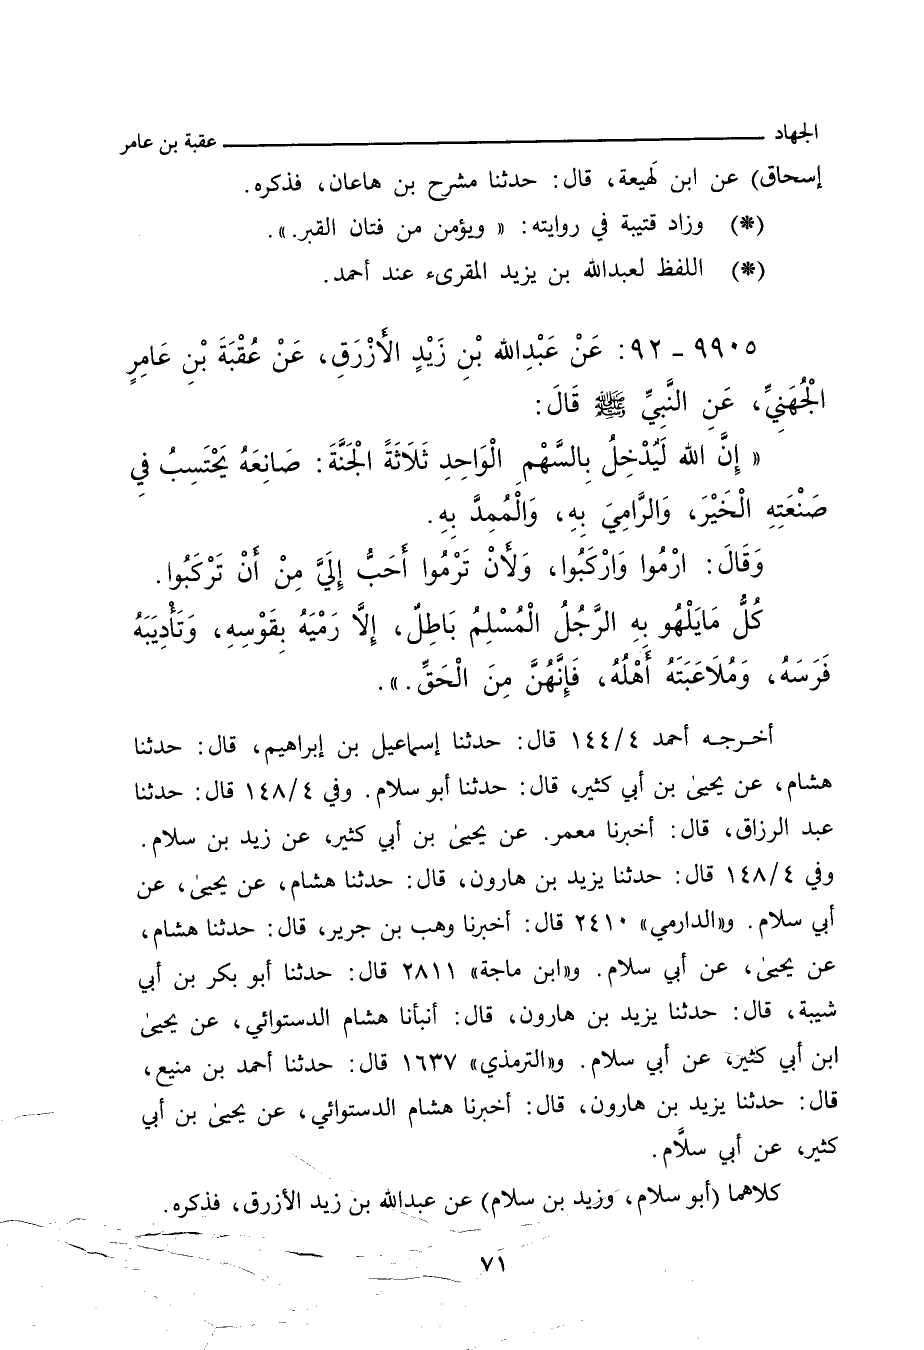 الجهاد عقبة بن عامر
إسحاق) عن ابن لَهيعة، قال: حدثنا مشرح بن هاعان، فذكره.
(*) وزاد قتيبة في روايته: « ويؤمن من فتان القبر.».
(*) اللفظ لعبدالله بن يزيد المقرىء عند أحمد.
٩٩٠٥ - ٩٢: عَنْ عَبْدِالله بْنِ زَيْدٍ الأَزْرَقِ، عَنْ عُقْبَةَ بْنِ عَامِرٍ
الْجُهَنِيِّ، عَنِ النَّبِيِّ ﷺ قَالَ:
« إِنَّ الله لَيُدْخِلُ بِالسَّهْمِ الْوَاحِدِ ثَلَاثَةً الْجَنَّةَ: صَانِعَهُ يَحْتَسِبُ فِي
صَنْعَتِهِ الْخَيْرَ، وَالرَّامِيَ بِهِ، وَالْمُمِدَّ بِهِ.
وَقَالَ: ارْمُوا وَارْكَبُوا، وَلَأَنْ تَرْمُوا أَحَبُّ إِلَيَّ مِنْ أَنْ تَرْكَبُوا.
كُلُّ مَايَلْهُو بِهِ الرَّجُلُ الْمُسْلِمُ بَاطِلٌ، إِلَّا رَمْيَهُ بِقَوْسِهِ، وَتَأْدِيبَهُ
فَرَسَهُ، وَمُلَاعَبَتَهُ أَهْلُهُ، فَإِنَّهُنَّ مِنَ الْحَقِّ.».
أخرجه أحمد ١٤٤/٤ قال: حدثنا إسماعيل بن إبراهيم، قال: حدثنا
هشام، عن يحيىٰ بن أبي كثير، قال: حدثنا أبو سلام. وفي ١٤٨/٤ قال: حدثنا
عبد الرزاق، قال: أخبرنا معمر. عن يحيىٰ بن أبي كثير، عن زيد بن سلام.
وفي ١٤٨/٤ قال: حدثنا يزيد بن هارون، قال: حدثنا هشام، عن يحيىٰ، عن
أبي سلام. و«الدارمي» ٢٤١٠ قال: أخبرنا وهب بن جرير، قال: حدثنا هشام،
عن يحيىٰ، عن أبي سلام. و«ابن ماجة» ٢٨١١ قال: حدثنا أبو بكر بن أبي
شيبة، قال: حدثنا يزيد بن هارون، قال: أنبأنا هشام الدستوائي، عن يحيىٰ
ابن أبي كثير، عن أبي سلام. و«الترمذي» ١٦٣٧ قال: حدثنا أحمد بن منيع،
قال: حدثنا يزيد بن هارون، قال: أخبرنا هشام الدستوائي، عن يحيىٰ بن أبي
كثير، عن أبي سلَّام.
كلاهما (أبو سلام، وزيد بن سلام) عن عبدالله بن زيد الأزرق، فذكره.
٧١